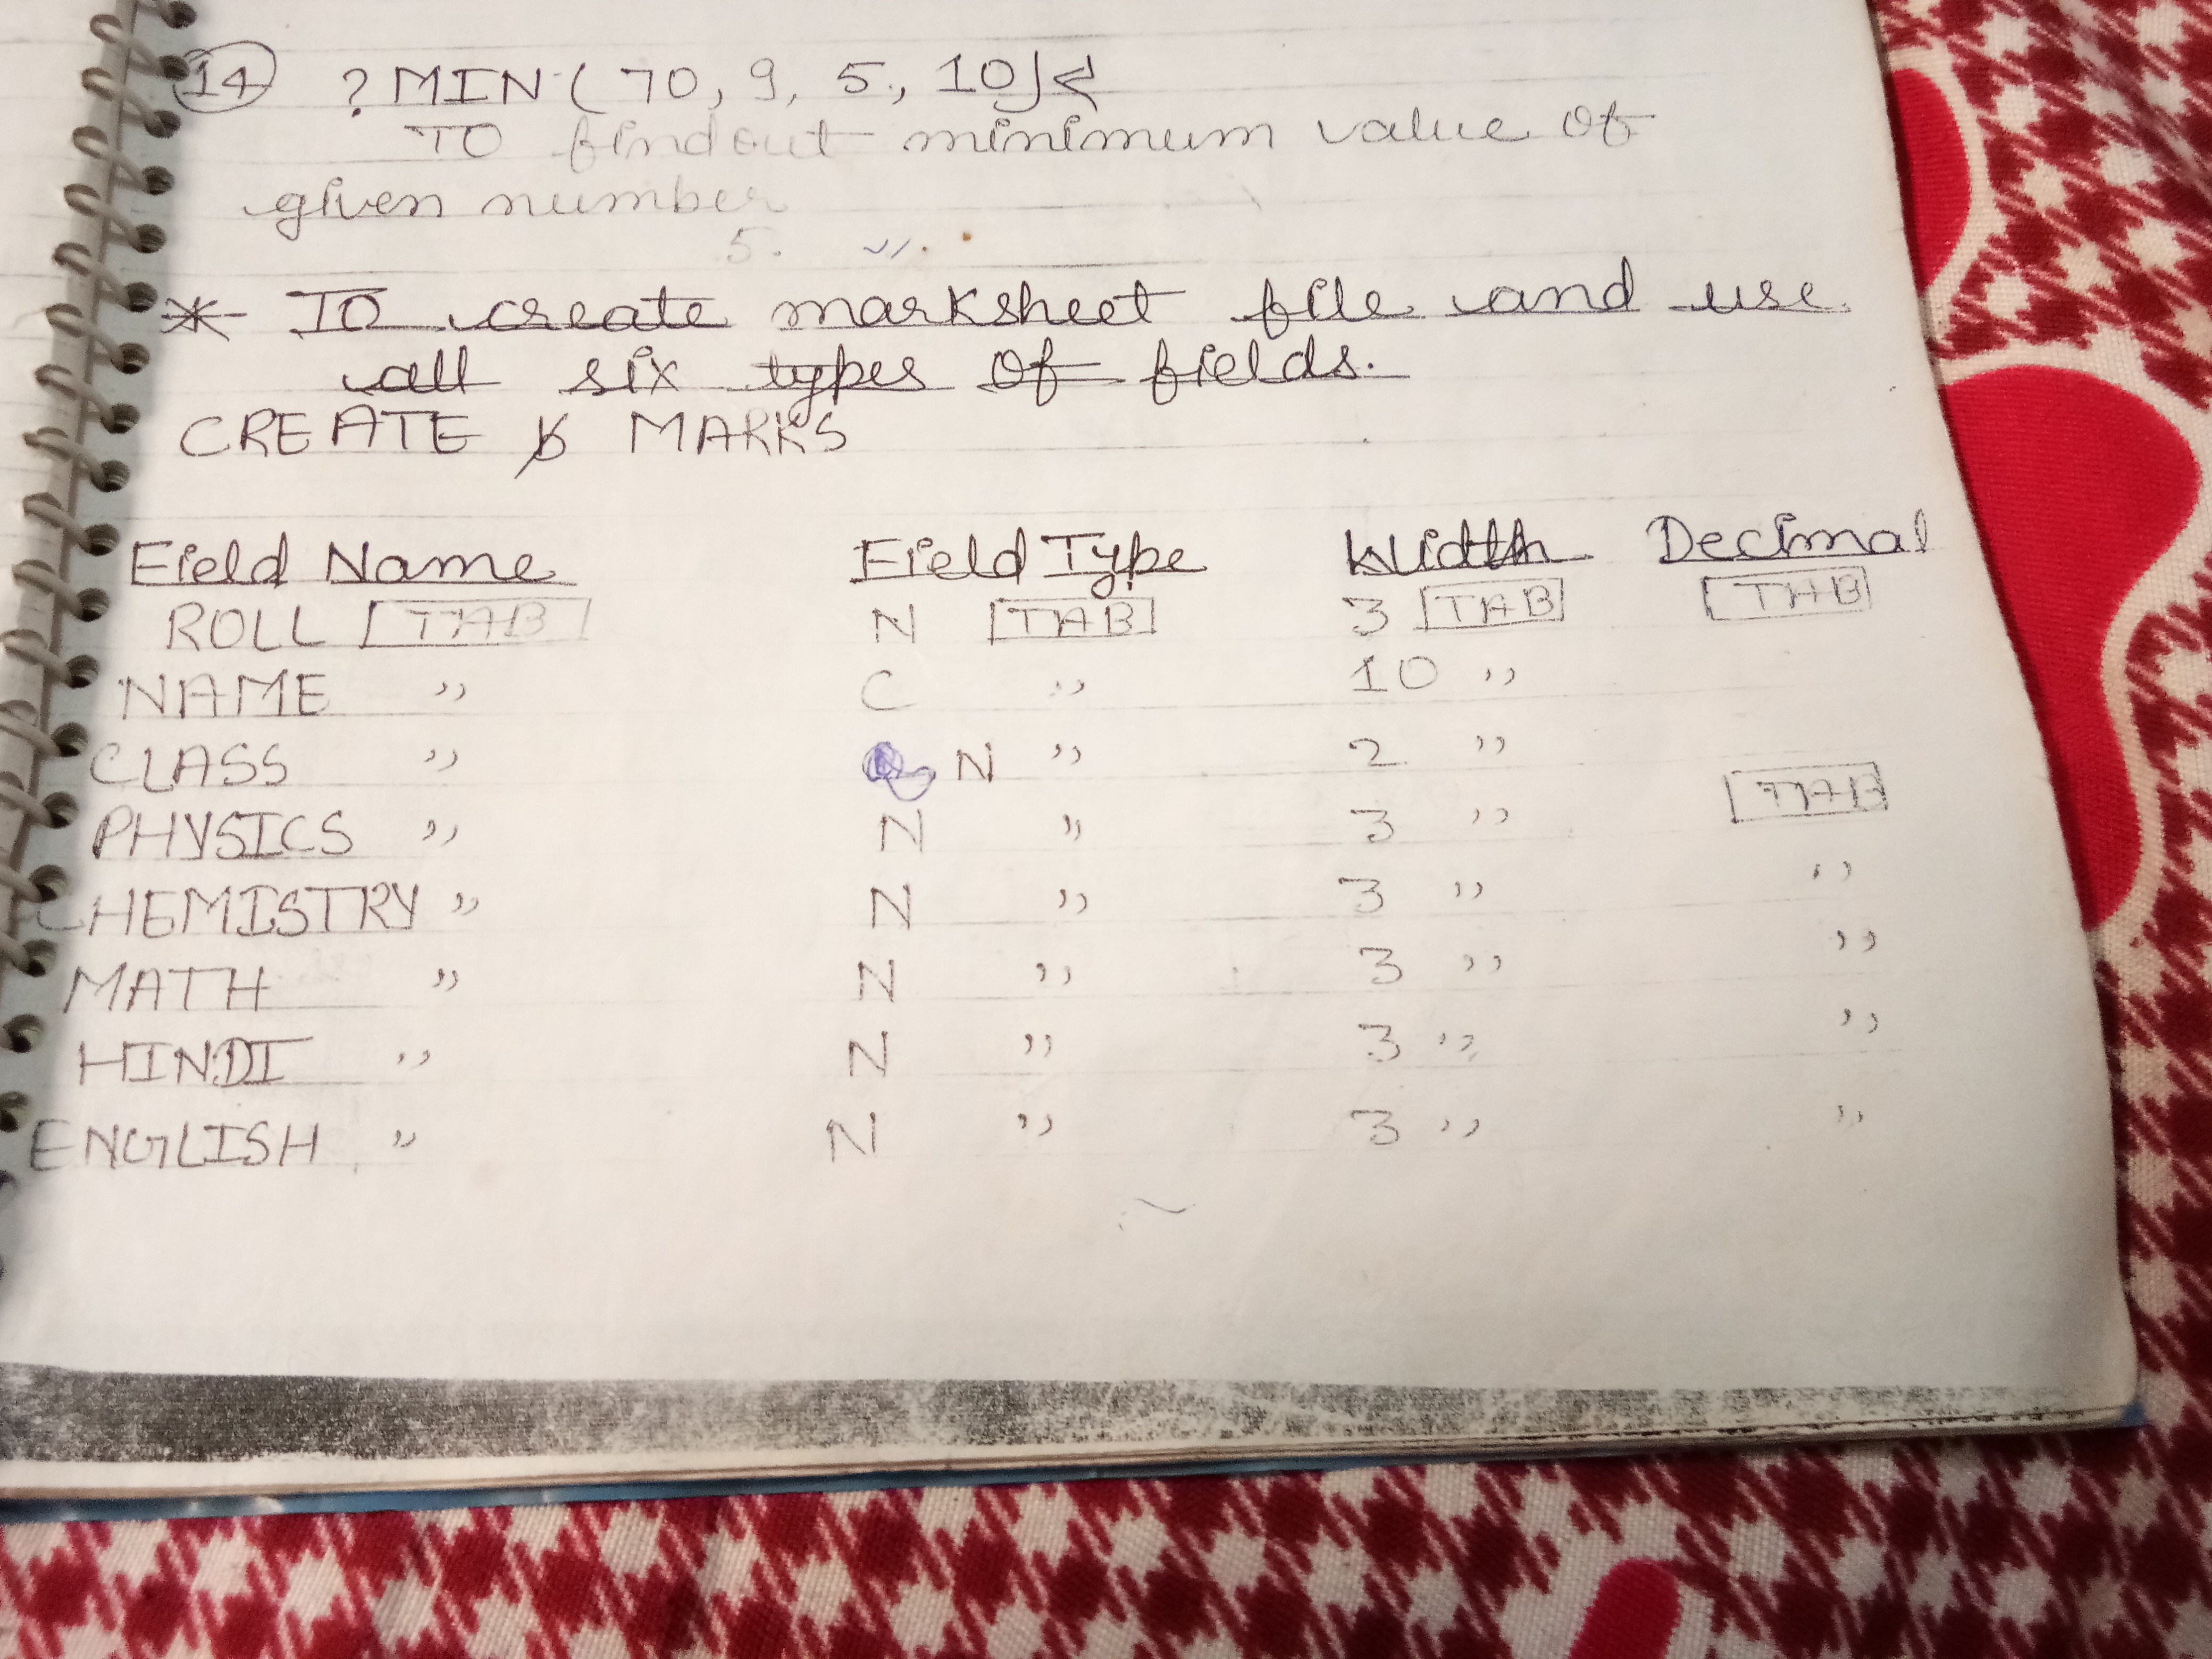 14 ? MIN ( 70, 9, 5, 10)
TO findout minimum value of
given number
5.
* TO create marksheet file and use
all six types of fields.
CREATE MARKS
Field Name Field Type Width Decimal
ROLL [TAB] N [TAB] 3 [TAB] [TAB]
NAME " C " 10 "
CLASS " N " 2 "
PHYSICS " N " 3 " [TAB]
CHEMISTRY " N " 3 " "
MATH " N " 3 " "
HINDI " N " 3 " "
ENGLISH " N " 3 " "